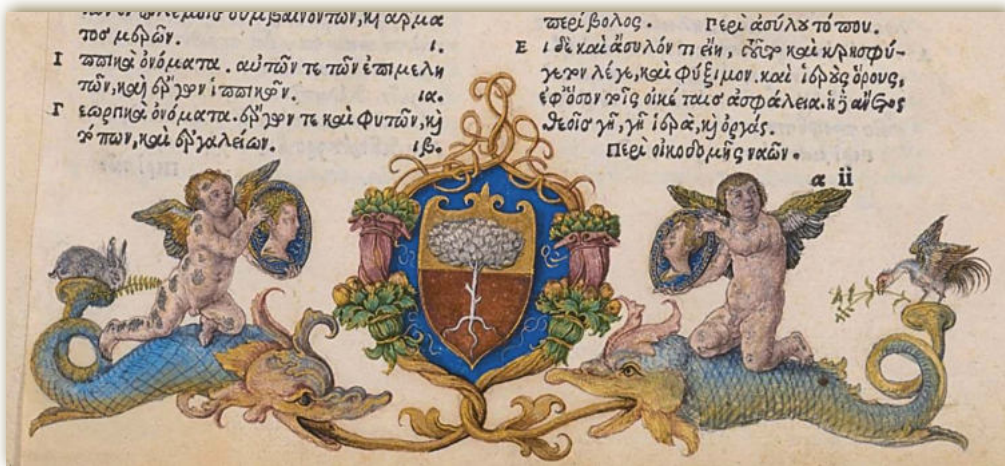 των ἐν πολέμοις συμβαινόντων, καὶ ἅρμα
τος μορῶν. ι.
Ι ππικὰ ὀνόματα. αὐτῶν τε τῶν ἐπιμελη
τῶν, καὶ ἔργων ἱππικῶν. ια.
Γ εωργικὰ ὀνόματα. ἔργων τε καὶ φυτῶν, καὶ
τόπων, καὶ ἐργαλείων. ιβ.
περίβολος. Περὶ ἀσύλου τόπου.
Ε ἰ δὲ καὶ ἄσυλόν τι εἴη, καὶ κρησφύ-
γετον λέγε, καὶ φύξιμον. καὶ ἱεροὺς ὅρους,
ἐφ' ὅσον τοῖς οἰκέταις ἀσφάλεια. ἡ ἄνετος
θεοῖς γῆ, γῆ ἱερὰ, καὶ ὀργάς.
Περὶ οἰκοδομῆς ναῶν.
α ii